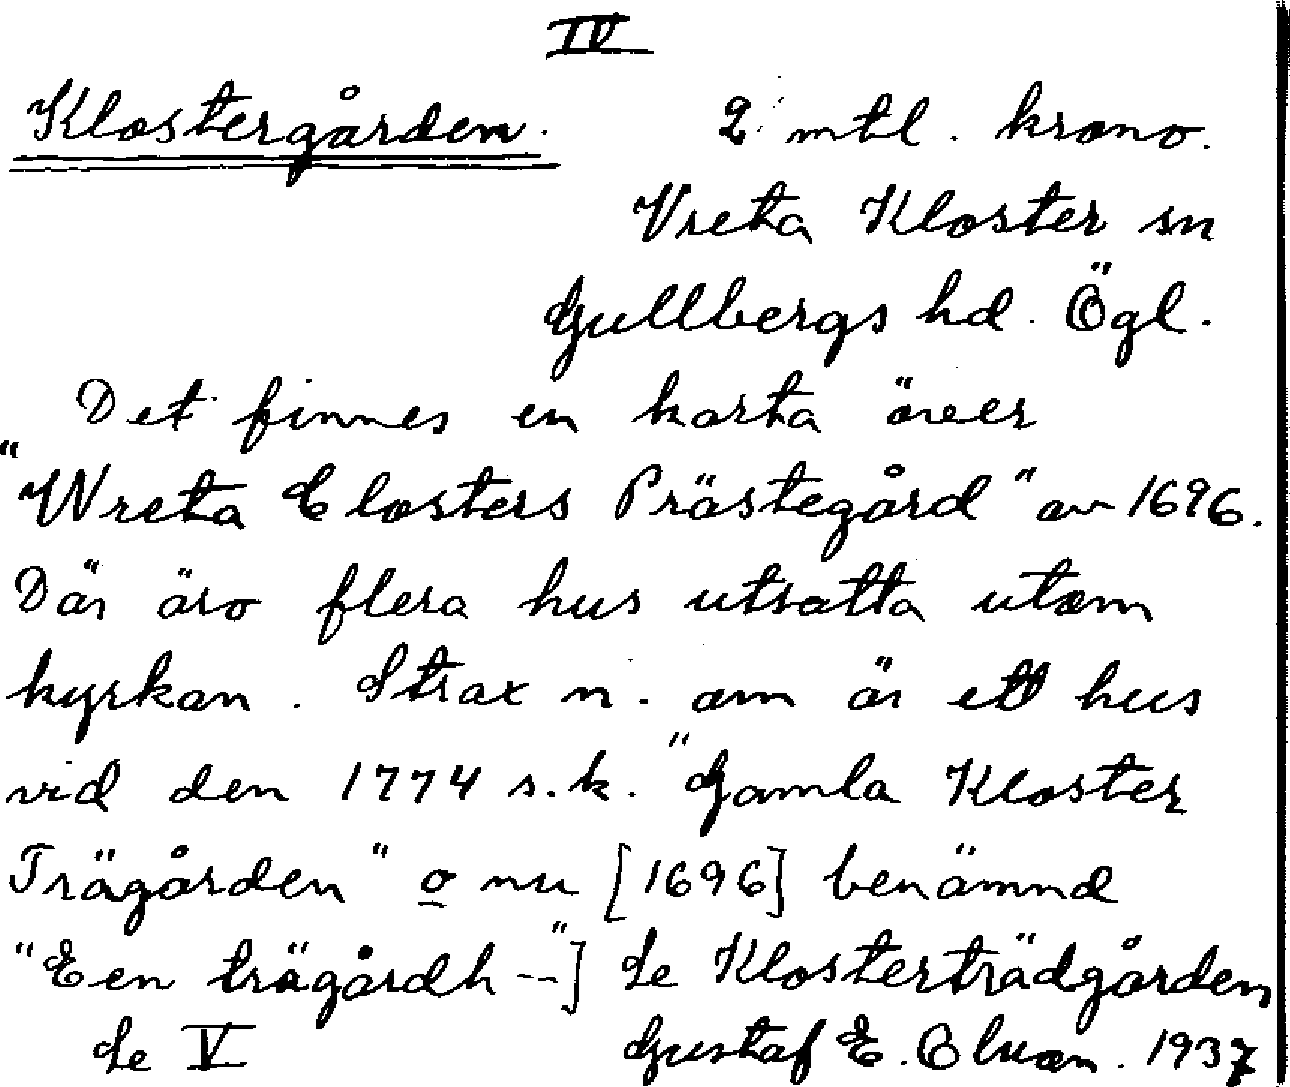 IV
Klostergården. 2 mtl. krono.
Vreta Kloster sn
Gullbergs hd. Ögl.
Det finnes en karta över
"Wreta Closters Prästegård" av 1696.
Där äro flera hus utsatta utom
kyrkan. Strax n. om är ett hus
vid den 1774 s.k. "Gamla Kloster
Trägården" o nu [1696] benämnd
"Een trägårdh --"] Se Klosterträdgården
Se V Gustaf E. 1937